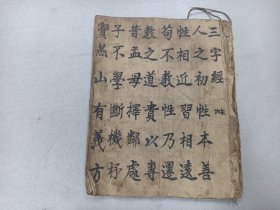 三字經
人之初 性本善
性相近 習相遠
苟不教 性乃遷
教之道 貴以專
昔孟母 擇鄰處
子不學 斷機杼
竇燕山 有義方